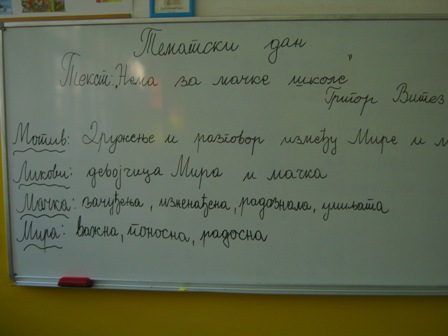 Тематски дан
Текст: „Нема за мачке школе"
Григор Витез
Мотив: Дружење и разговор између Мире и м
Ликови: девојчица Мира и мачка
Мачка: зачуђена, изненађена, радознала, умиљата
Мира: важна, поносна, радосна